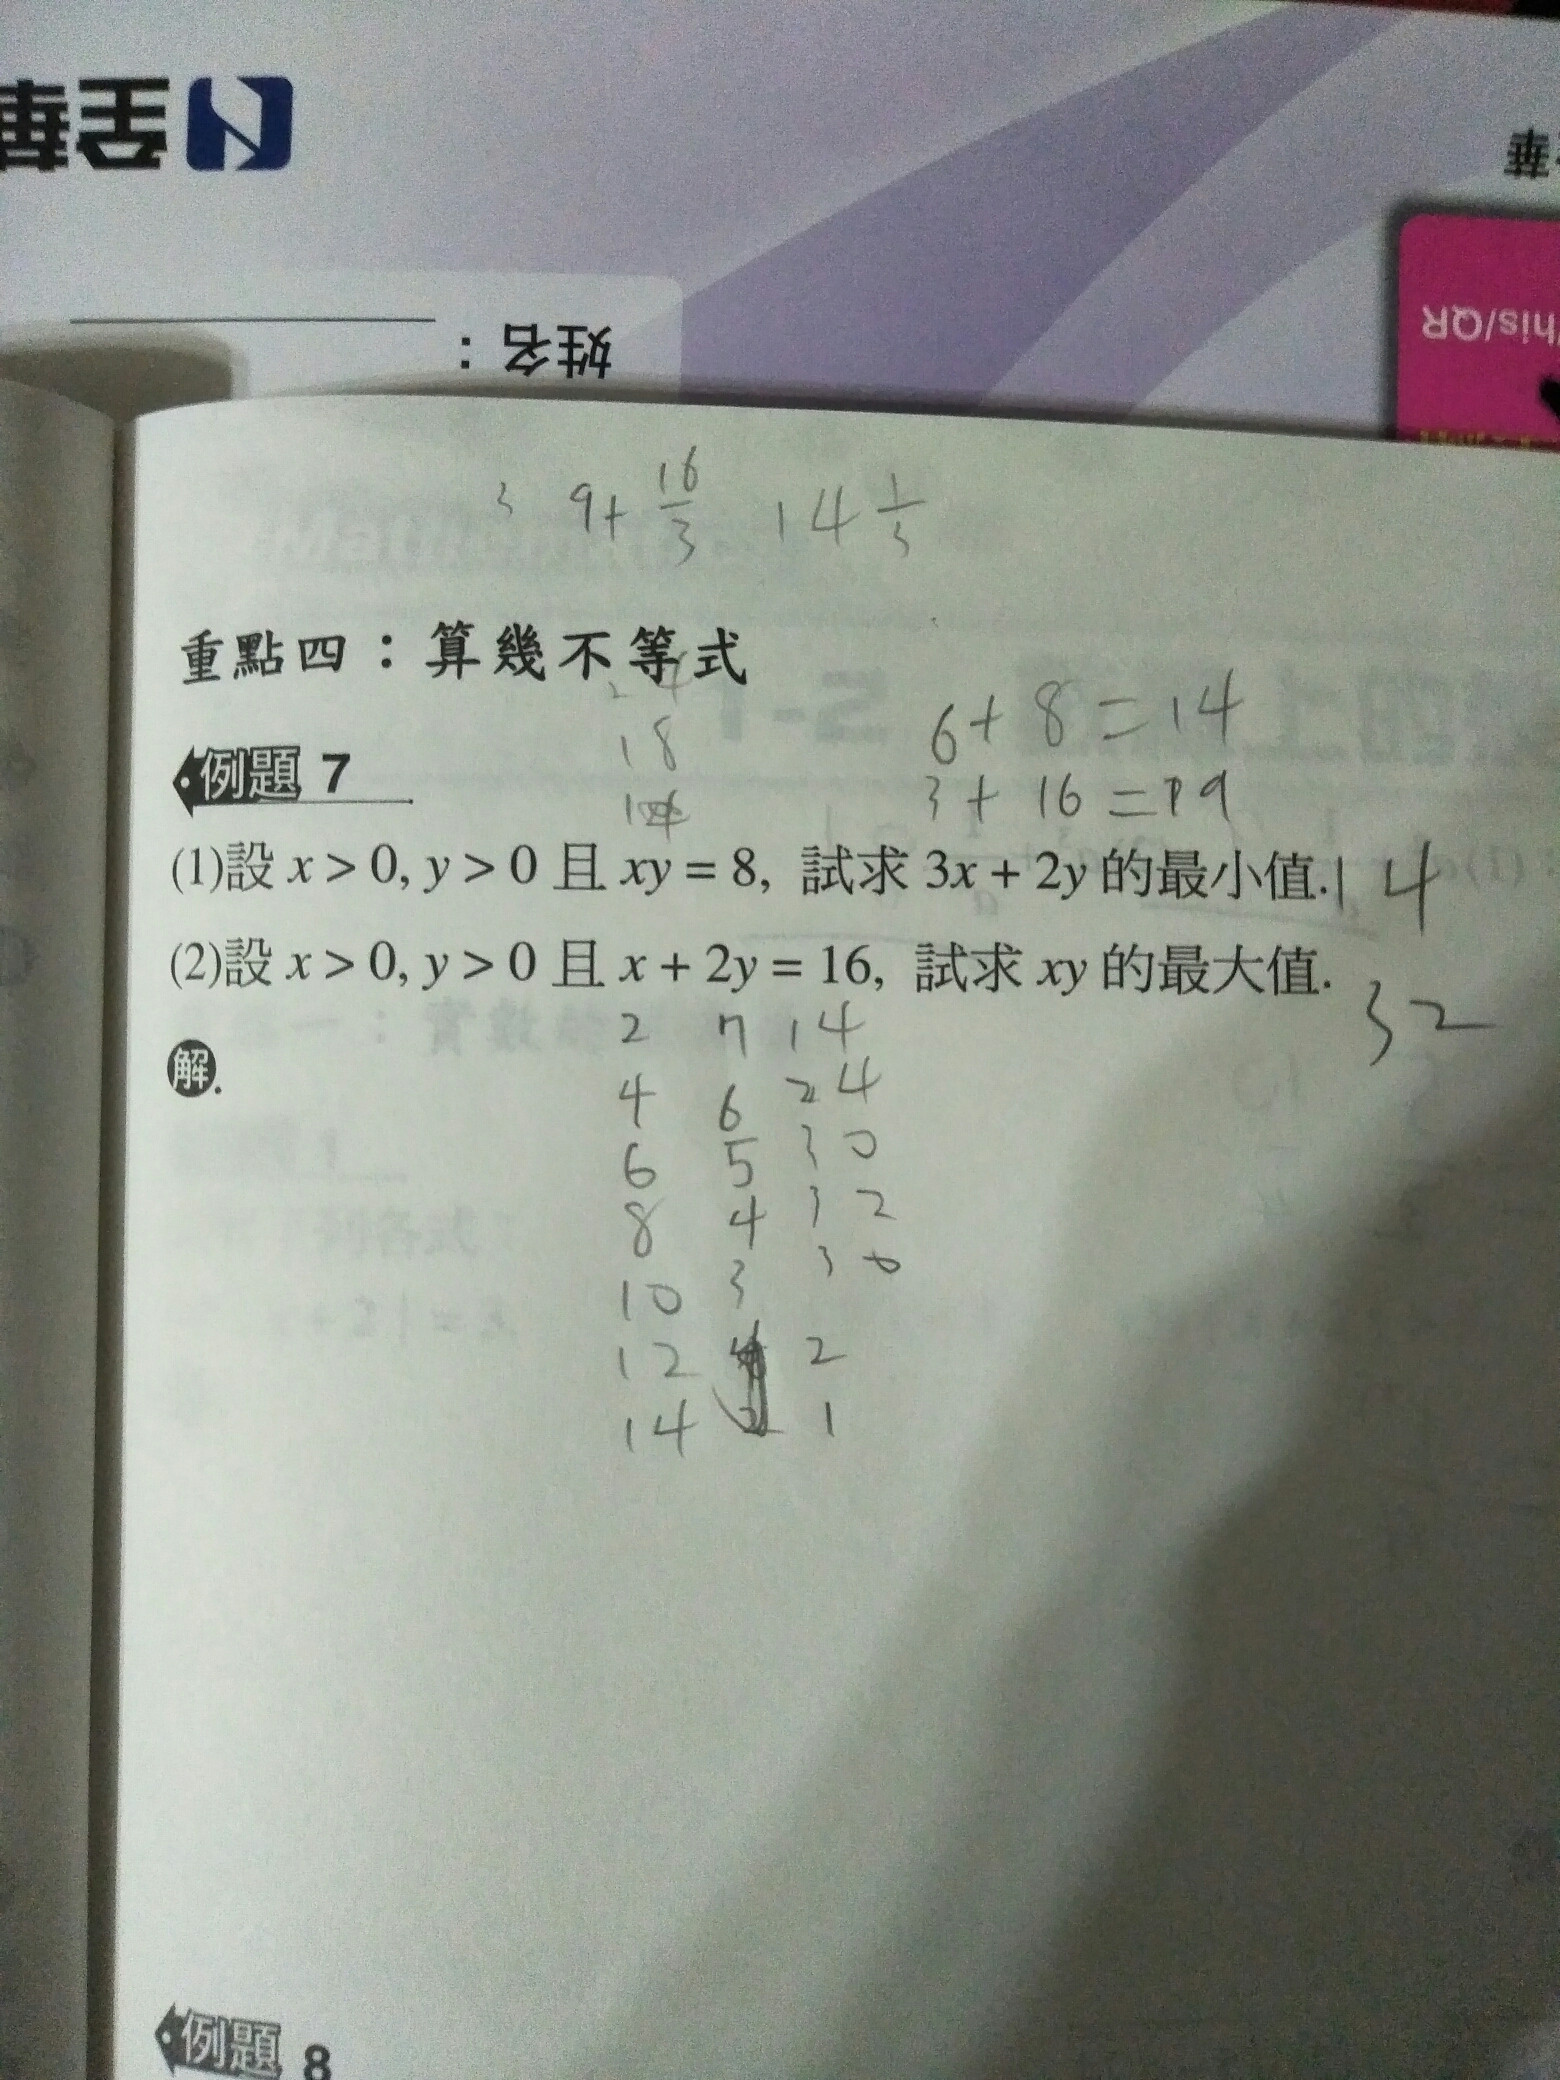 全華
華
姓名：
his/QR
3 9+ 16/3 14 1/3
重點四：算幾不等式
24
18
6+8=14
例題 7
3+16=19
(1)設 x > 0, y > 0 且 xy = 8, 試求 3x + 2y 的最小值. 14
(2)設 x > 0, y > 0 且 x + 2y = 16, 試求 xy 的最大值. 32
解.
2 7 14
4 6 24
6 5 30
8 4 32
10 3 30
12 2
14 1
例題 8